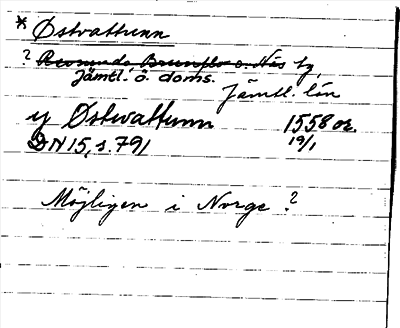 * Østvattunn
? Revsunds, Brunflo o. Näs tg,
Jämtl. ö. doms.
Jämtl. län
y Østwattunn 1558 or.
DN 15, s. 791 19/1
Möjligen i Norge?